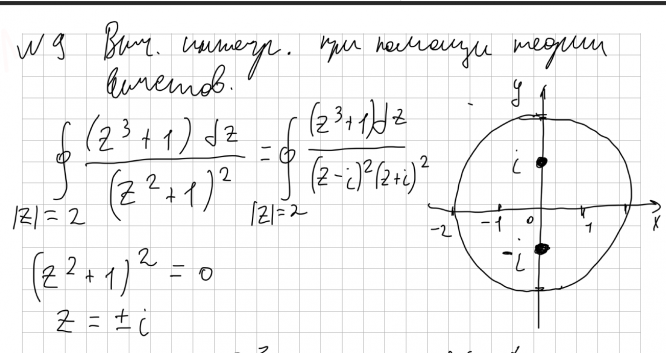 №9 Выч. интегр. при помощи теории
вычетов.
∮ (z³ + 1) dz / (z² + 1)² = ∮ (z³+1)dz / (z-i)²(z+i)²
|z| = 2 |z|=2
(z² + 1)² = 0
z = ± i
y
i
-2 -1 0 1 x
-i